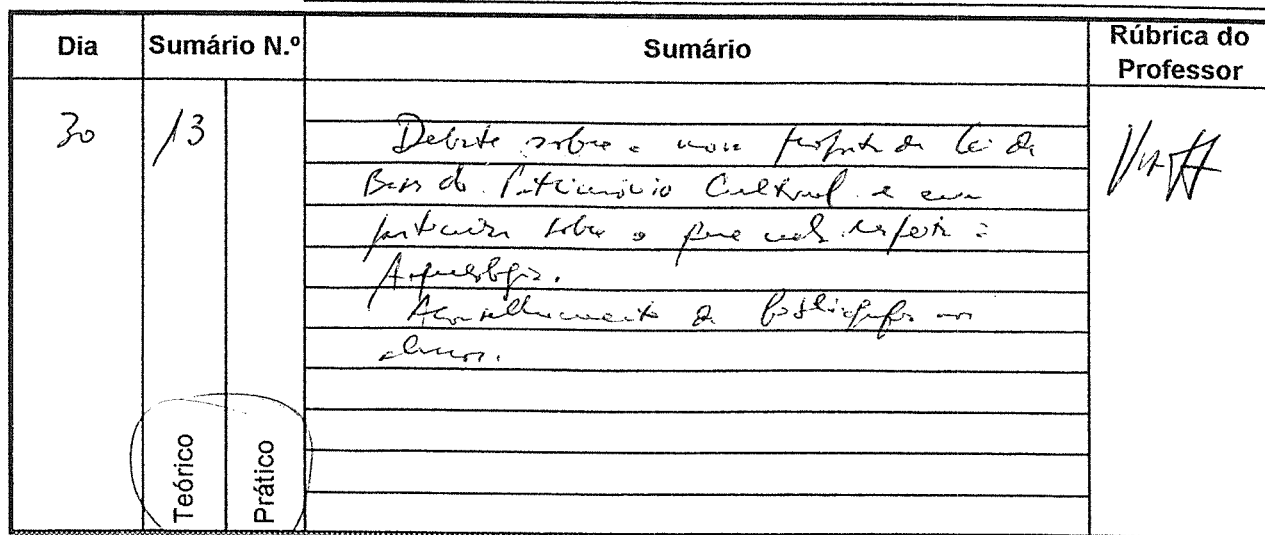 Dia Sumário N.º Sumário Rúbrica do Professor
30 13
Debate sobre a nova proposta de Lei de
Bases do Património Cultural e em
particular sobre o que nela respeita à
Arqueologia.
Aconselhamento de bibliografia aos
alunos.
Teórico Prático